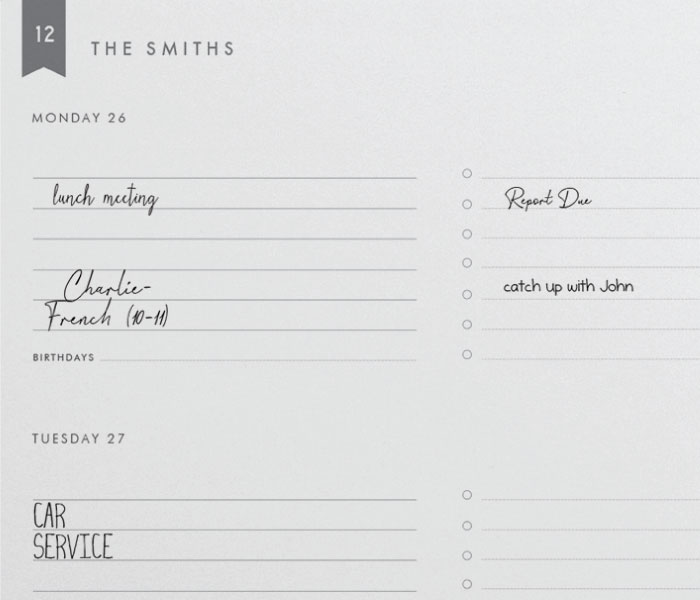 12
THE SMITHS
MONDAY 26
lunch meeting
Report Due
Charlie-
French (10-11)
catch up with John
BIRTHDAYS
TUESDAY 27
CAR
SERVICE